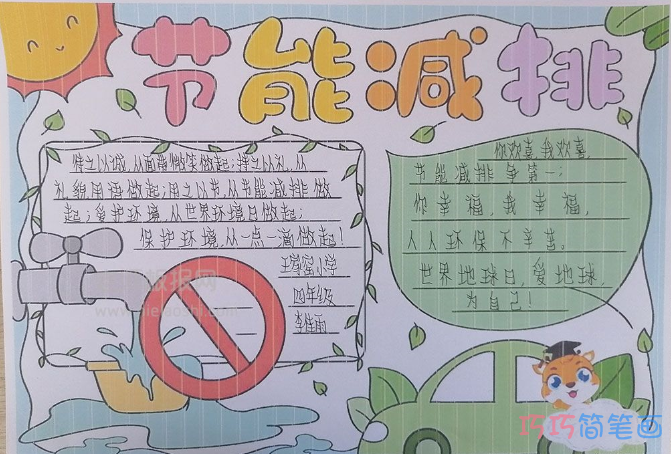 节能减排
待之以诚,从面带微笑做起;持之以礼,从
礼貌用语做起;用之以节,从节能减排做
起;爱护环境,从世界环境日做起;
保护环境,从一点一滴做起!
小学
四年级
你欢喜,我欢喜,
节能减排争第一;
你幸福,我幸福,
人人环保不辛苦。
世界地球日,爱地球,
为自己!
巧巧简笔画